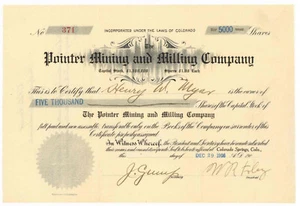 No 371 INCORPORATED UNDER THE LAWS OF COLORADO 5000 Shares
Pointer Mining and Milling Company
Capital Stock Shares $1.00 Each
This is to Certify that Henry W. Myar
FIVE THOUSAND Shares of the Capital Stock of
The Pointer Mining and Milling Company
full paid and non-assessable transferable only on the Books of the Company on surrender of this
Certificate properly endorsed
In Witness Whereof, the President and Secretary have hereunto subscribed
their names and caused the corporate Seal to be hereto affixed at Colorado Springs, Colo.,
this day of DEC 19